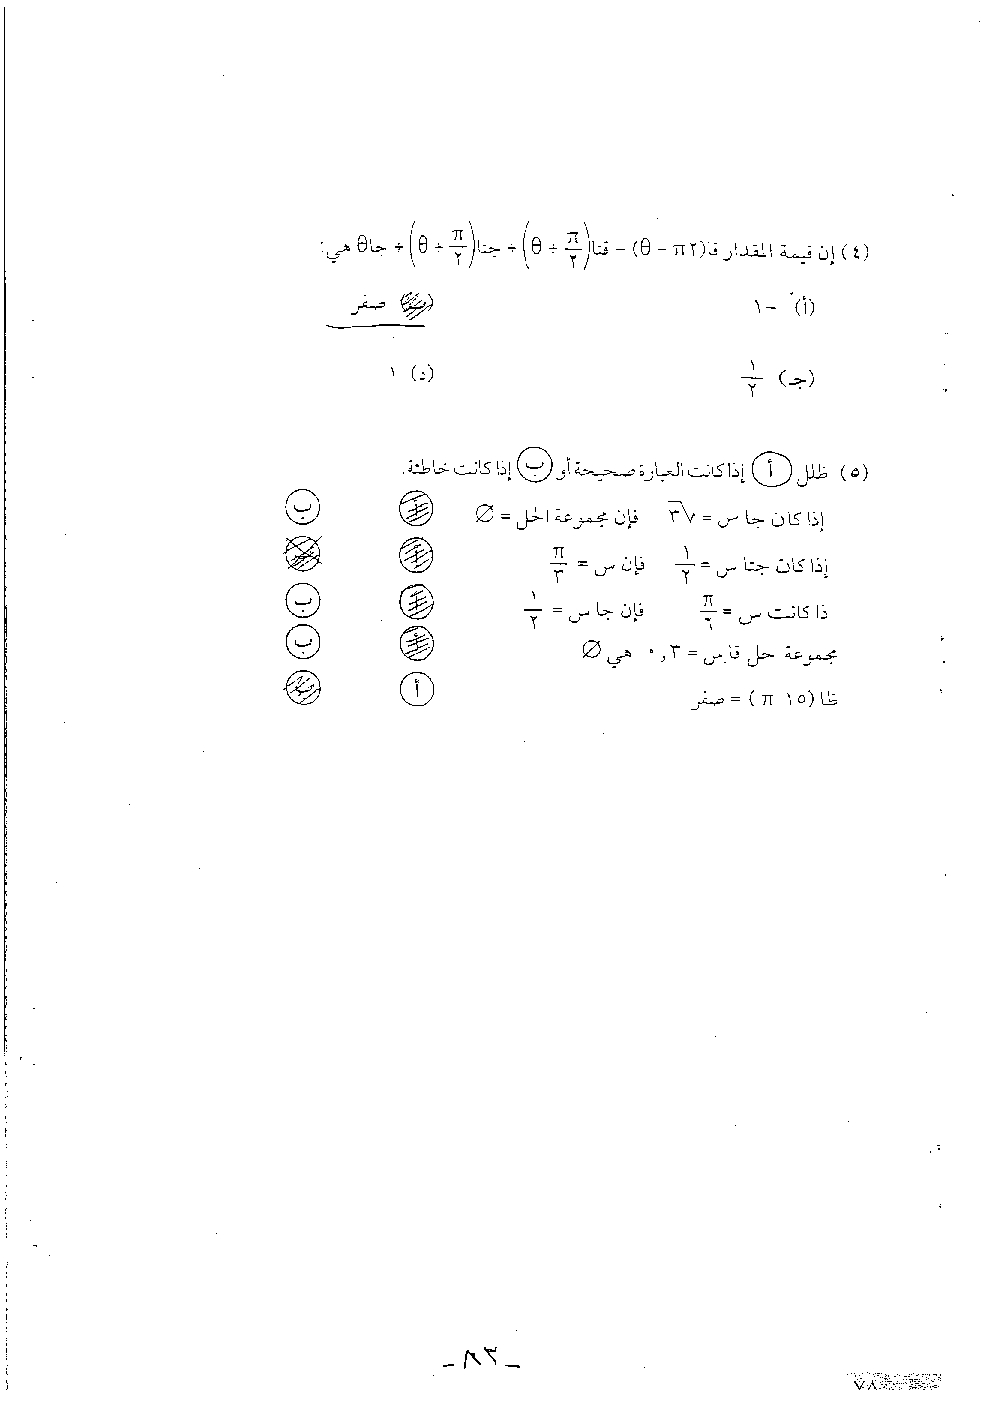 (٤) إن قيمة المقدار قا(٢π − θ) − قتا(π/٢ + θ) + جتا(π/٢ + θ) + جاθ هي:
(أ) −١ (ب) صفر
(جـ) ١/٢ (د) ١
(٥) ظلل أ إذا كانت العبارة صحيحة أو ب إذا كانت خاطئة.
إذا كان جا س = √٣ فإن مجموعة الحل = ∅ أ ب
إذا كان جتا س = ١/٢ فإن س = π/٣ أ
ذا كانت س = π/٦ فإن جا س = ١/٢ أ ب
مجموعة حل قا س = ٠,٣ هي ∅ أ ب
ظا (١٥ π) = صفر أ ب
٧٨